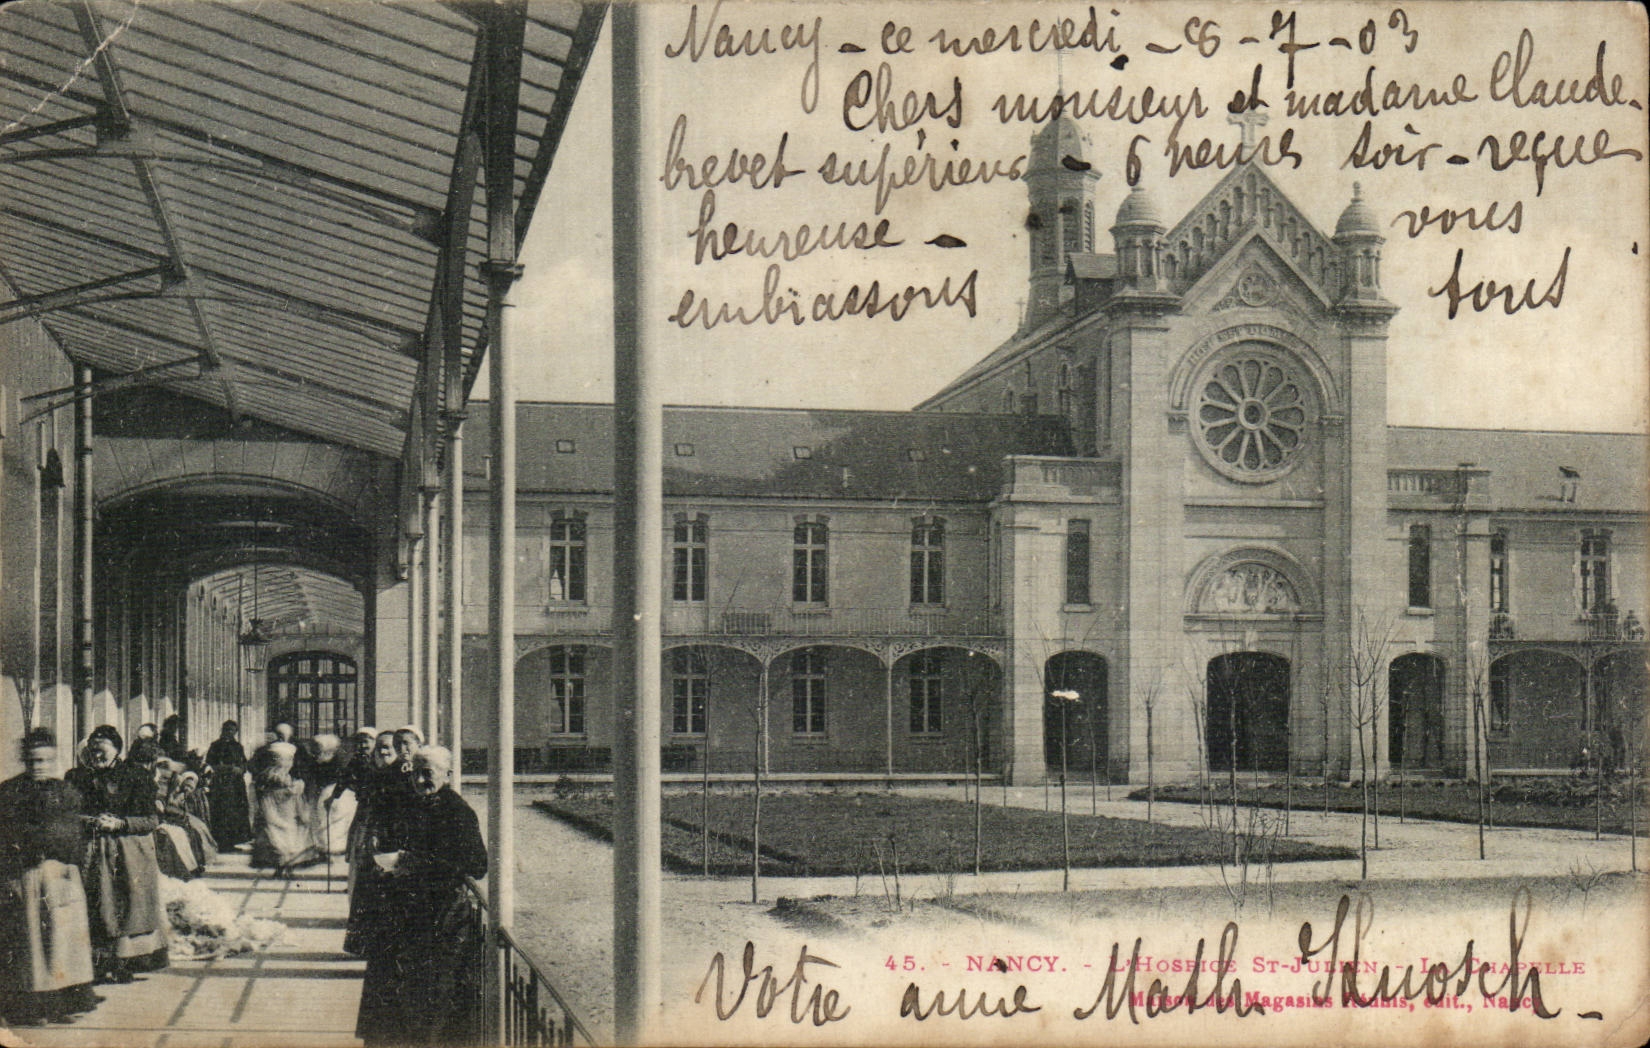 Nancy - ce mercredi - 8 - 7 - 03
Chers monsieur et madame Claude -
brevet supérieur - 6 heures soir - reçue
heureuse - vous
embrassons tous
45. - NANCY. - L'HOSPICE ST-JULIEN - LA CHAPELLE
Maison des Magasins Réunis, édit., Nancy
Votre amie Math.